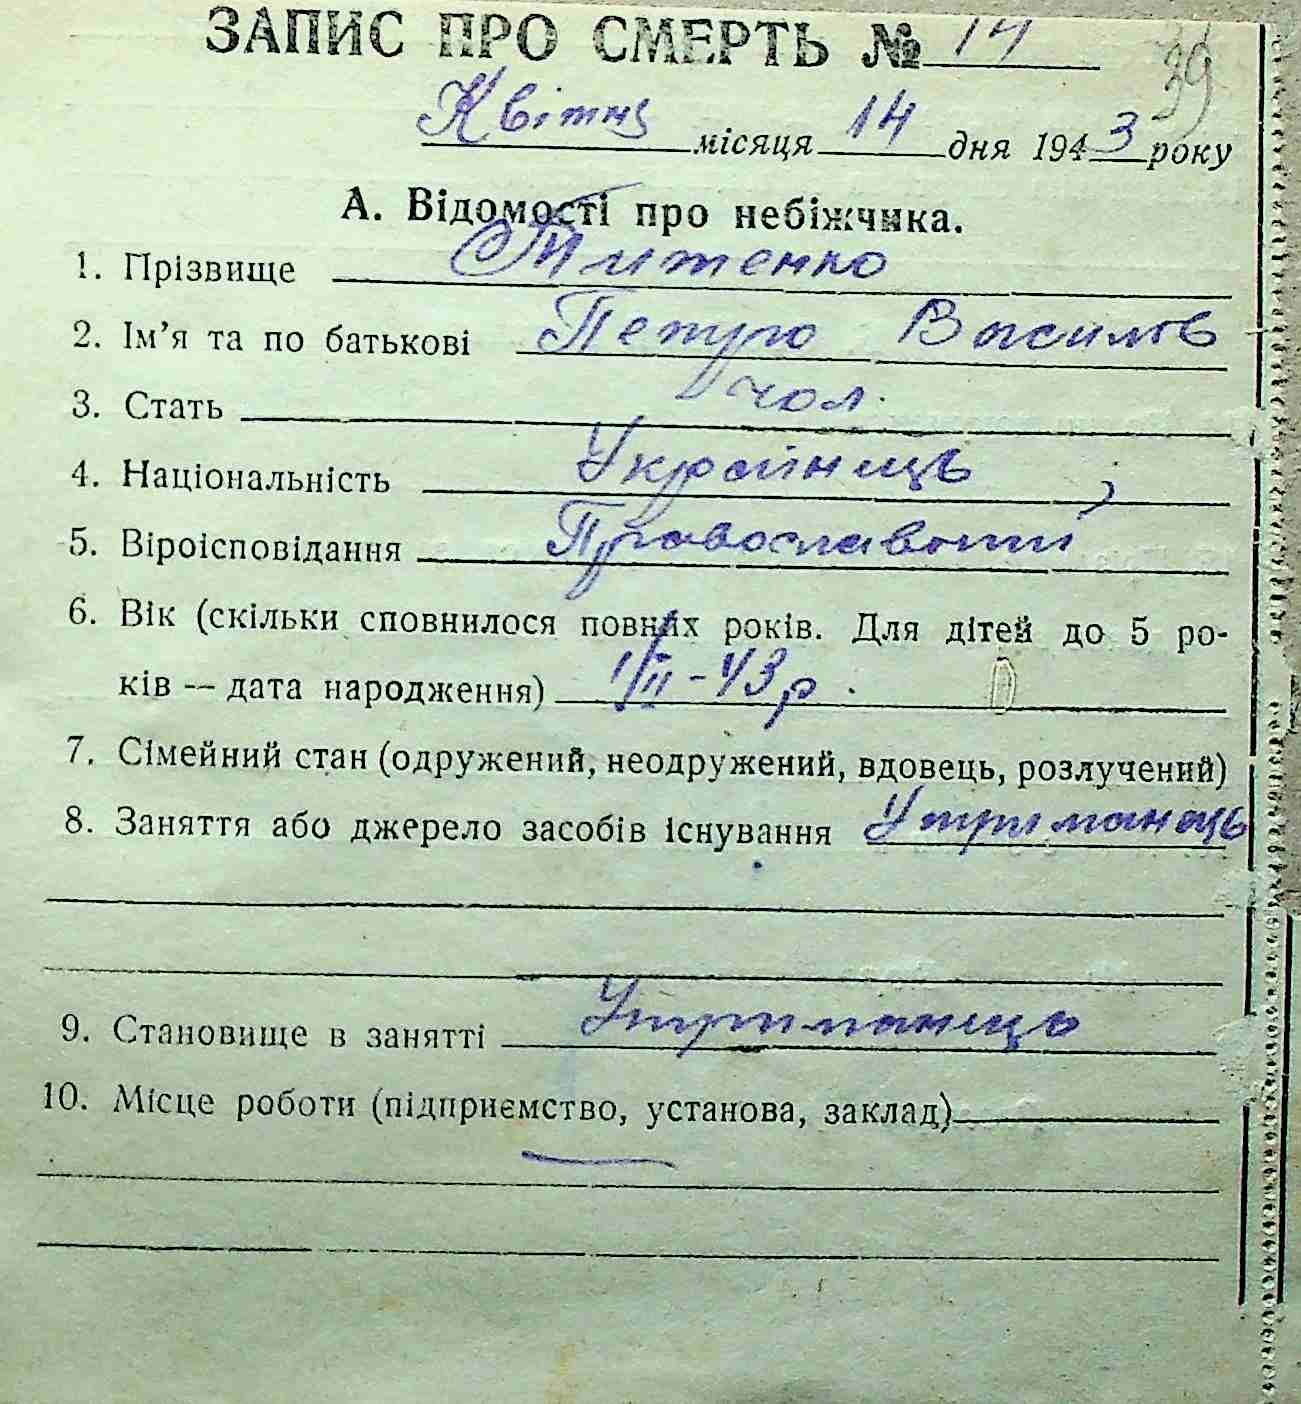 ЗАПИС ПРО СМЕРТЬ № 14
39
Квітня місяця 14 дня 1943 року
А. Відомості про небіжчика.
1. Прізвище Титенко
2. Ім'я та по батькові Петро Василів
3. Стать чол.
4. Національність Українець
5. Віроісповідання Православний
6. Вік (скільки сповнилося повних років. Для дітей до 5 ро-
ків — дата народження) 1/II - 43 р.
7. Сімейний стан (одружений, неодружений, вдовець, розлучений)
8. Заняття або джерело засобів існування Утриманець
9. Становище в занятті Утриманець
10. Місце роботи (підприємство, установа, заклад)